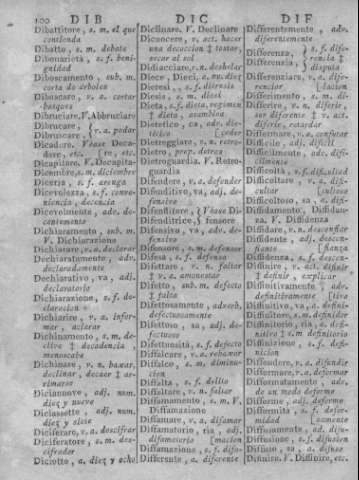 100 DIB DIC DIF
Dibattitore, s. m. el que
contienda
Dibatto, s. m. debate
Dibonarietà, s. f. beni-
gnidad
Diboscamento, sub. m.
corta de arboles
Diboscare, v. a. cortar
bosques
Dibruciare, V. Abbruciare
Dibrucare,
Dibruscare, v. a. podar
Dicadere. Vease Deca-
dere, etc.
Dicapitare. V. Decapitare
Dicembre, s. m. diciembre
Diceria, s. f. arenga
Dicevolezza, s. f. conve-
niencia, decencia
Dicevolmente, adv. de-
centemente
Dichiaramento, sub. m.
V. Dichiarazione
Dichiarare, v. a. declarar
Dichiaratamente, adv.
declaradamente
Dichiarativo, va, adj.
declaratorio
Dichiarazione, s. f. de-
claracion
Dichiarire, v. a. infor-
mar, aclarar
Dichinamento, s. m. de-
clive ‡ decadencia,
menoscabo
Dichinare, v. n. baxar,
declinar, decaer ‡ ar-
rimarse
Diciannove, adj. num.
diez y nueve
Diciassette, adj. num.
diez y siete
Diciferare, v. a. descifrar
Diciferatore, s. m. des-
cifrador
Diciotto, a. diez y ocho
Diclinare. V. Declinare
Diconcere, v. act. hacer
una decoccion ‡ tostar,
secar al sol
Didiacciare, v. n. deshelar
Diece, Dieci, a. nu. diez
Dieresi, s. f. dieresis
Diesis, s. m. diesi
Dieta, s. f. dieta, regimen
‡ dieta, asamblea
Dietetico, ca, adv. die-
tético
Dietreggiare, v. n. retro-
ceder
Dietro, prep. detras
Dietroguardia. V. Retro-
guardia
Difendere, v. a. defender
Difenditivo, va, adj. de-
fensivo
Difenditore, Vease Di-
Difenditrice, fensore
Difensivo, va, adv. de-
fensivo
Difensore, s. m. defensor
Difesa, s. f. defensa
Difettare, v. n. faltar
‡ v. a. acriminar
Difetto, sub. m. defecto
‡ falta
Difettosamente, adverb.
defectuosamente
Difettoso, sa, adj. de-
fectuoso
Difettuosità, s. f. defecto
Diffalcare, v. a. rebaxar
Diffalco, s. m. diminu-
cion
Diffalta, s. f. delito
Diffaltare, v. n. faltar
Diffamamento, s. m. V.
Diffamazione
Diffamare, v. a. difamar
Diffamatorio, ria, adj.
difamatorio
Diffamazione, s. f. difa-
macion
Differente, a. diferente
Differentemente, adv.
diferentemente
Differenza, s. f. dife-
Differenzia, rencia ‡
disputa
Differenziare, v. a. dife-
renciar
Differimento, s. m. dilacion
Differire, v. n. diferir,
ser diferente ‡ v. act.
diferir, retardar
Differmare, v. a. confutar
Difficile, adj. difícil
Difficilmente, adv. difi-
cilmente
Difficoltà, s. f. dificultad
Difficoltare, v. a. difi-
cultar
Difficoltoso, sa, a. difi-
cultoso
Diffidamento, Diffidan-
za. V. Diffidenza
Diffidare, v. n. desconfiar
Diffidente, adj. descon-
fiado
Diffidenza, s. f. descon-
fianza
Diffinire, v. act. definir
‡ definir, explicar
Diffinitivamente, adv.
definitivamente
Diffinitivo, va, a. definitivo
Diffinitore, s. m. definidor
Diffinitorio, ria, a. defi-
nitivo ‡ s. m. definitorio
Diffinizione, s. f. defi-
nicion
Diffondere, v. a. difundir
Difformare, v. a. deformar
Difformatamente, adv.
de un modo deforme
Difforme, adj. deforme
Difformità, s. f. defor-
midad
Diffusamente, adv. difusa-
mente
Diffusione, s. f. difusion
Diffuso, sa, a. difuso
Difinire. V. Diffinire, etc.